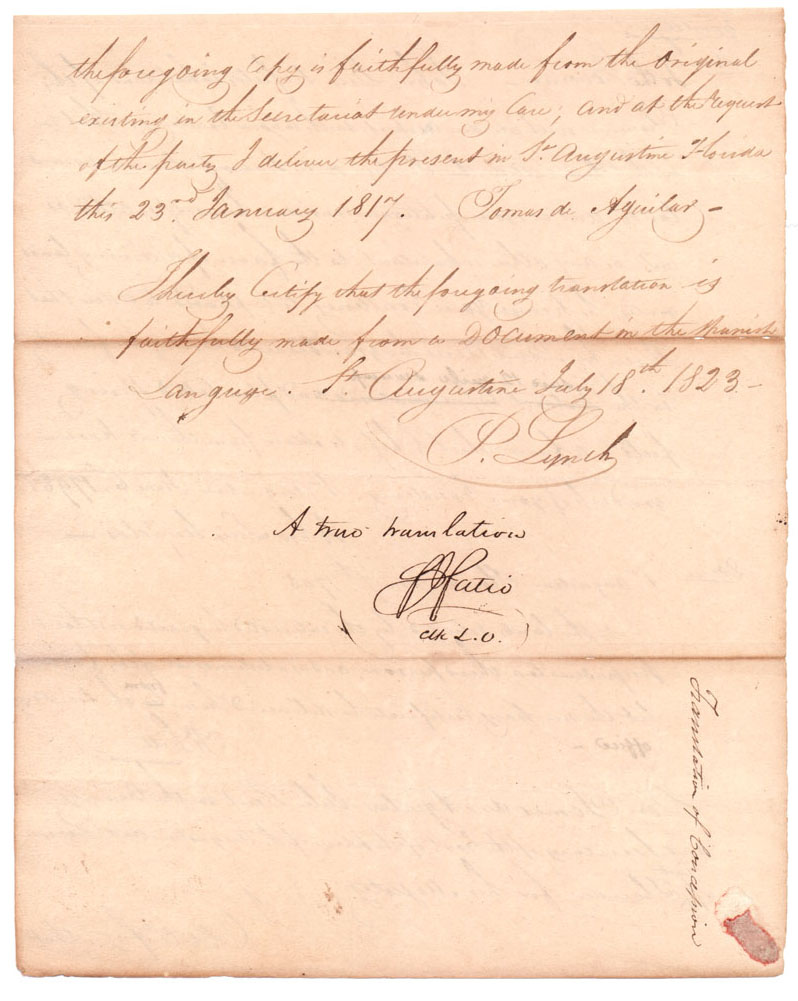 the foregoing Copy is faithfully made from the Original
existing in the Secretariat under my Care; and at the Request
of the party I deliver the present in St. Augustine Florida
this 23rd January 1817. Tomas de Aguilar –
I hereby Certify that the foregoing translation is
faithfully made from a Document in the Spanish
Language. St. Augustine July 18th. 1823 –
P. Lynch
A true translation
Fatio
Clk L.O.
Translation of Concession